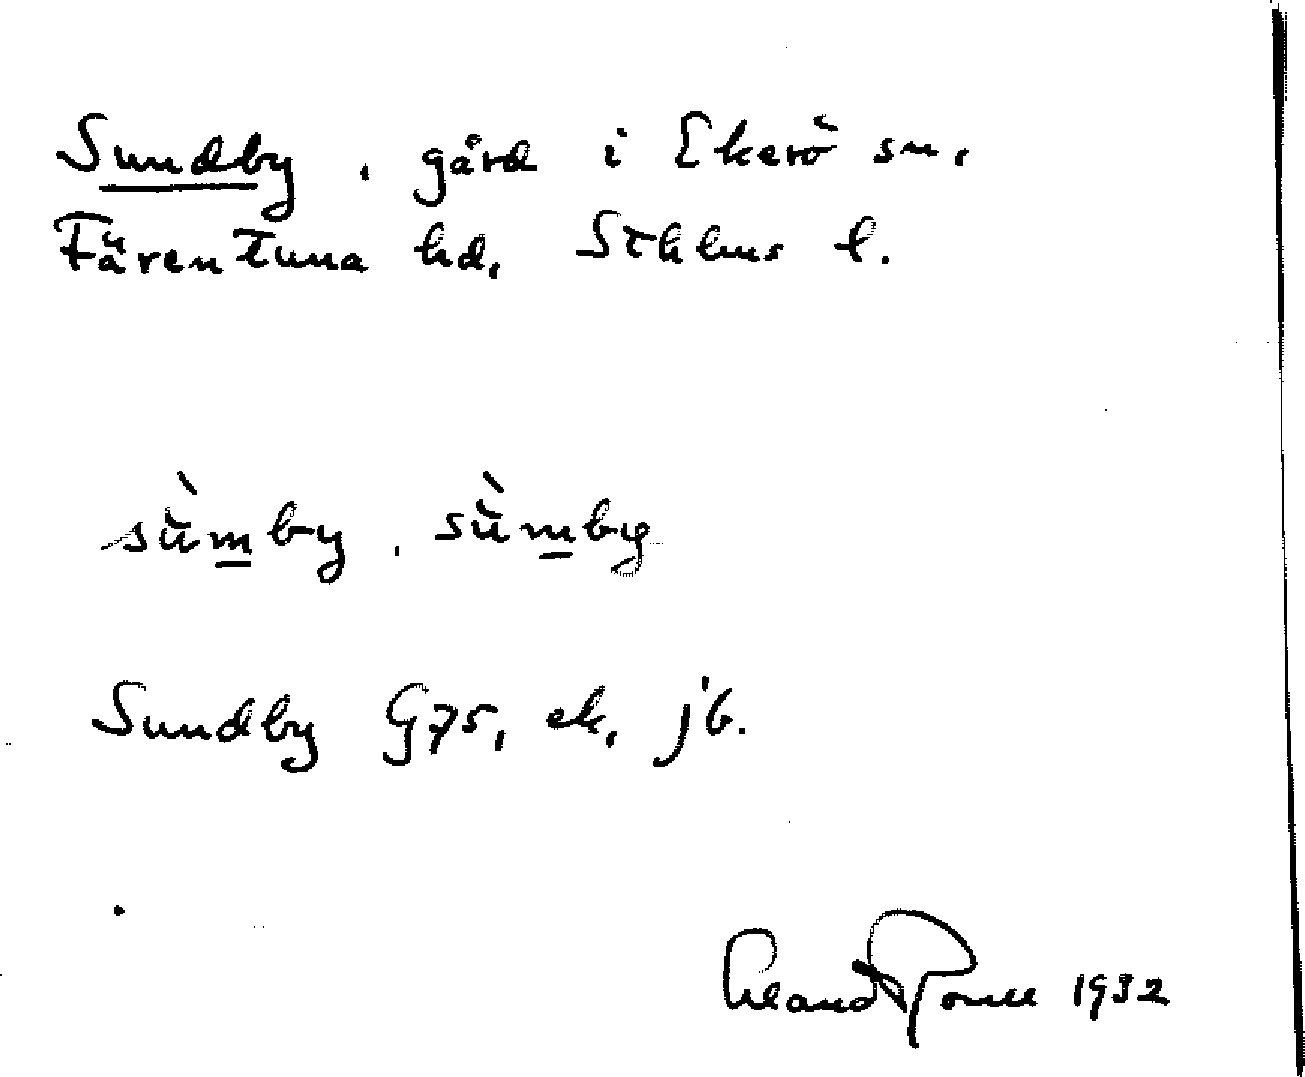 Sundby, gård i Ekerö sn,
Färentuna hd, Sthlms l.
sùmby, sùmby
Sundby G75, ek, jb.
1932